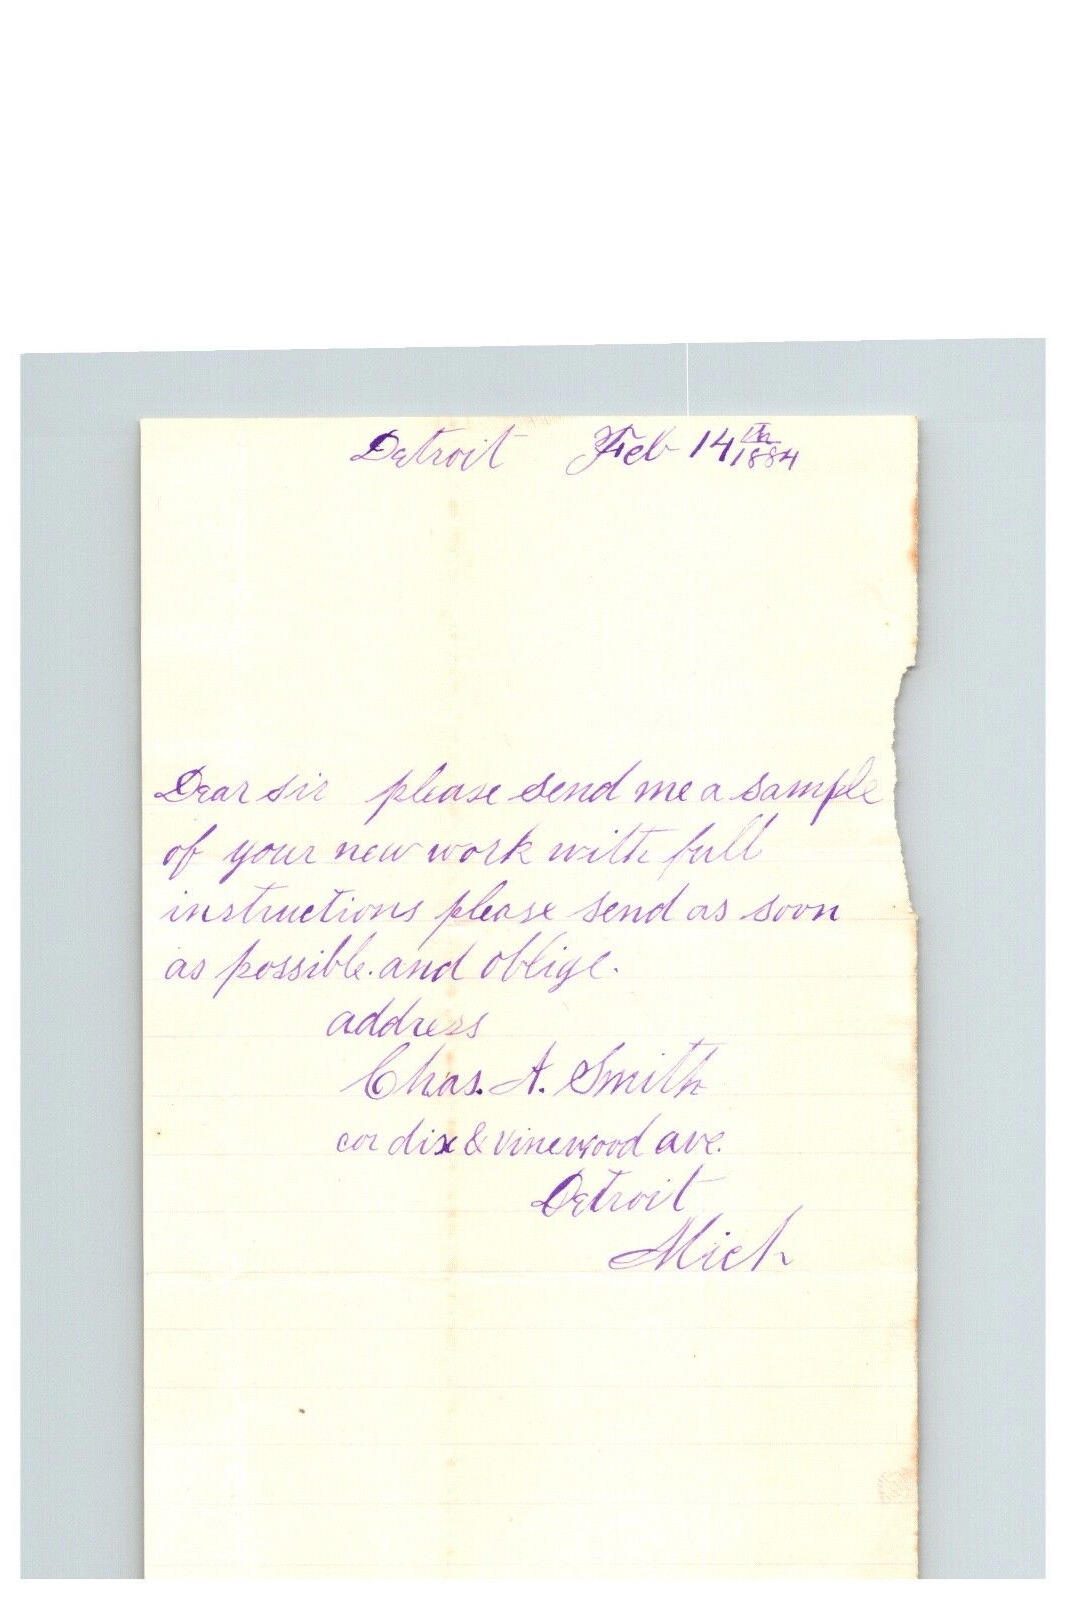 Detroit Feb 14th 1884
Dear sir please send me a sample
of your new work with full
instructions please send as soon
as possible. and oblige.
address
Chas. A. Smith
cor dix & vinewood ave.
Detroit
Mich